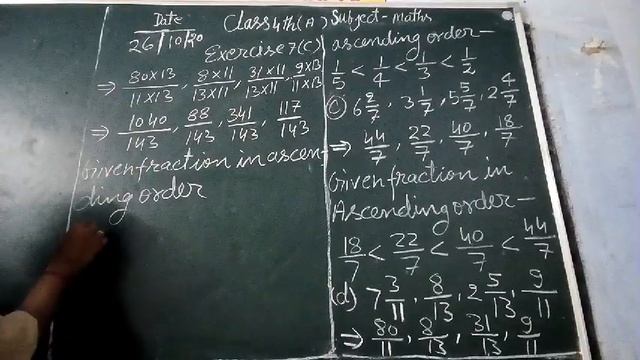 Date Class 4th (A) Subject - maths
26/10/20
Exercise 7(C)
⇒ 80×13/11×13, 8×11/13×11, 31×11/13×11, 9×13/11×13
⇒ 1040/143, 88/143, 341/143, 117/143
Given fraction in ascen-
ding order
ascending order -
1/5 < 1/4 < 1/3 < 1/2
(c) 6 2/7, 3 1/7, 5 5/7, 2 4/7
⇒ 44/7, 22/7, 40/7, 18/7
Given fraction in
Ascending order -
18/7 < 22/7 < 40/7 < 44/7
(d) 7 3/11, 8/13, 2 5/13, 9/11
⇒ 80/11, 8/13, 31/13, 9/11